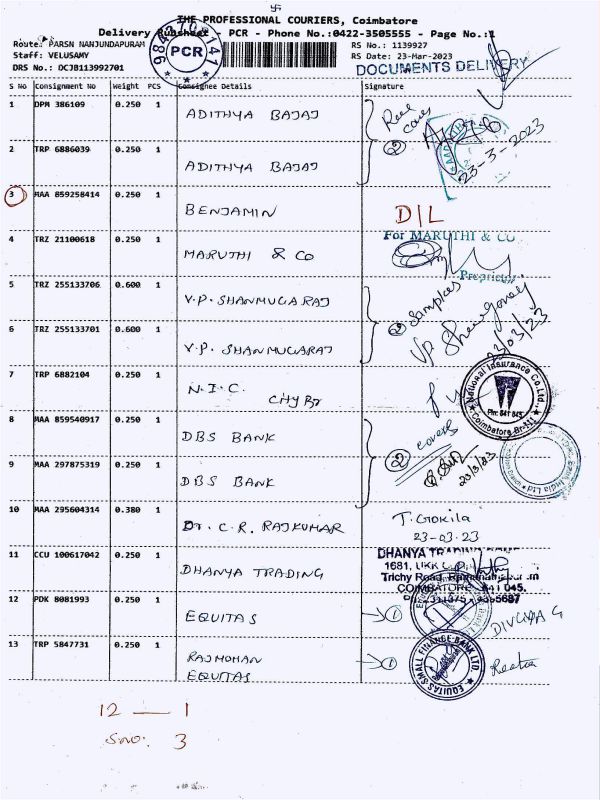 THE PROFESSIONAL COURIERS, Coimbatore
Delivery Runsheet - PCR - Phone No.:0422-3505555 - Page No.:1
Route: PARSN NANJUNDAPURAM
Staff: VELUSAMY
DRS No.: DCJB113992701
PCR
RS No.: 1139927
RS Date: 23-Mar-2023
DOCUMENTS DELIVERY
S No Consignment No Weight PCS Consignee Details Signature
1 DPM 386109 0.250 1 ADITHYA BAJAJ
2 TRP 6886039 0.250 1 ADITHYA BAJAJ
covers
2
23-3-2023
3 MAA 859258414 0.250 1 BENJAMIN D/L
4 TRZ 21100618 0.250 1 MARUTHI & CO
For MARUTHI & CO
Proprietor
5 TRZ 255133706 0.600 1 V.P. SHANMUGARAJ
6 TRZ 255133701 0.600 1 V.P. SHANMUGARAJ
2 Samples
23/03/23
7 TRP 6882104 0.250 1 N.I.C.
National Insurance Co.Ltd.,
Pin: 641 045
Coimbatore Br-III
8 MAA 859540917 0.250 1 DBS BANK
9 MAA 297875319 0.250 1 DBS BANK
2 covers
23/3/23
10 MAA 295604314 0.380 1 Dr. C. R. RAJKUMAR
T. Gokila
23-03-23
11 CCU 100617042 0.250 1 DHANYA TRADING
1681,
Trichy Road,
COIMBATORE
12 PDK 8081993 0.250 1 EQUITAS
1
DIVGYA G
13 TRP 5847731 0.250 1 RAJMOHAN
EQUITAS
1
EQUITAS SMALL FINANCE BANK LTD.
12 — 1
S.no. 3